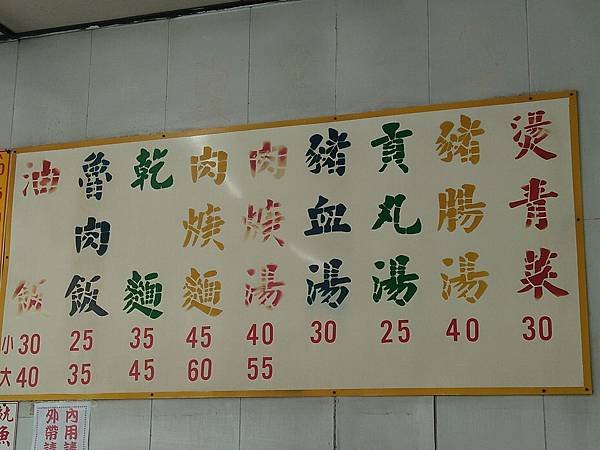 油飯
魯肉飯
乾麵
肉焿麵
肉焿湯
豬血湯
貢丸湯
豬腸湯
燙青菜
小 30 25 35 45 40 30 25 40 30
大 40 35 45 60 55
內用請
外帶請
魚